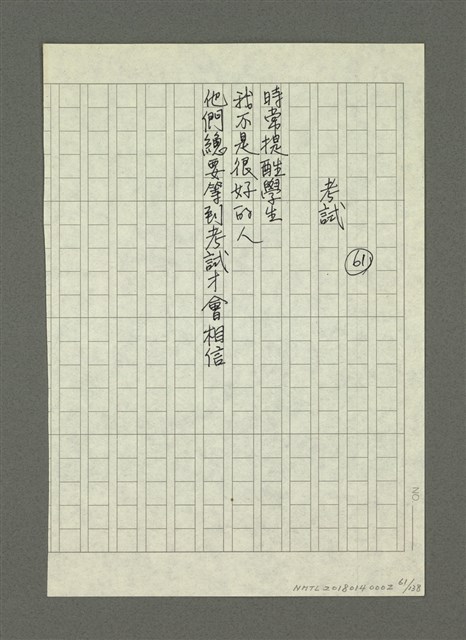 61
考試
時常提醒學生
我不是很好的人
他們總要等到考試才會相信
NO
NMTL20180140002 61/138